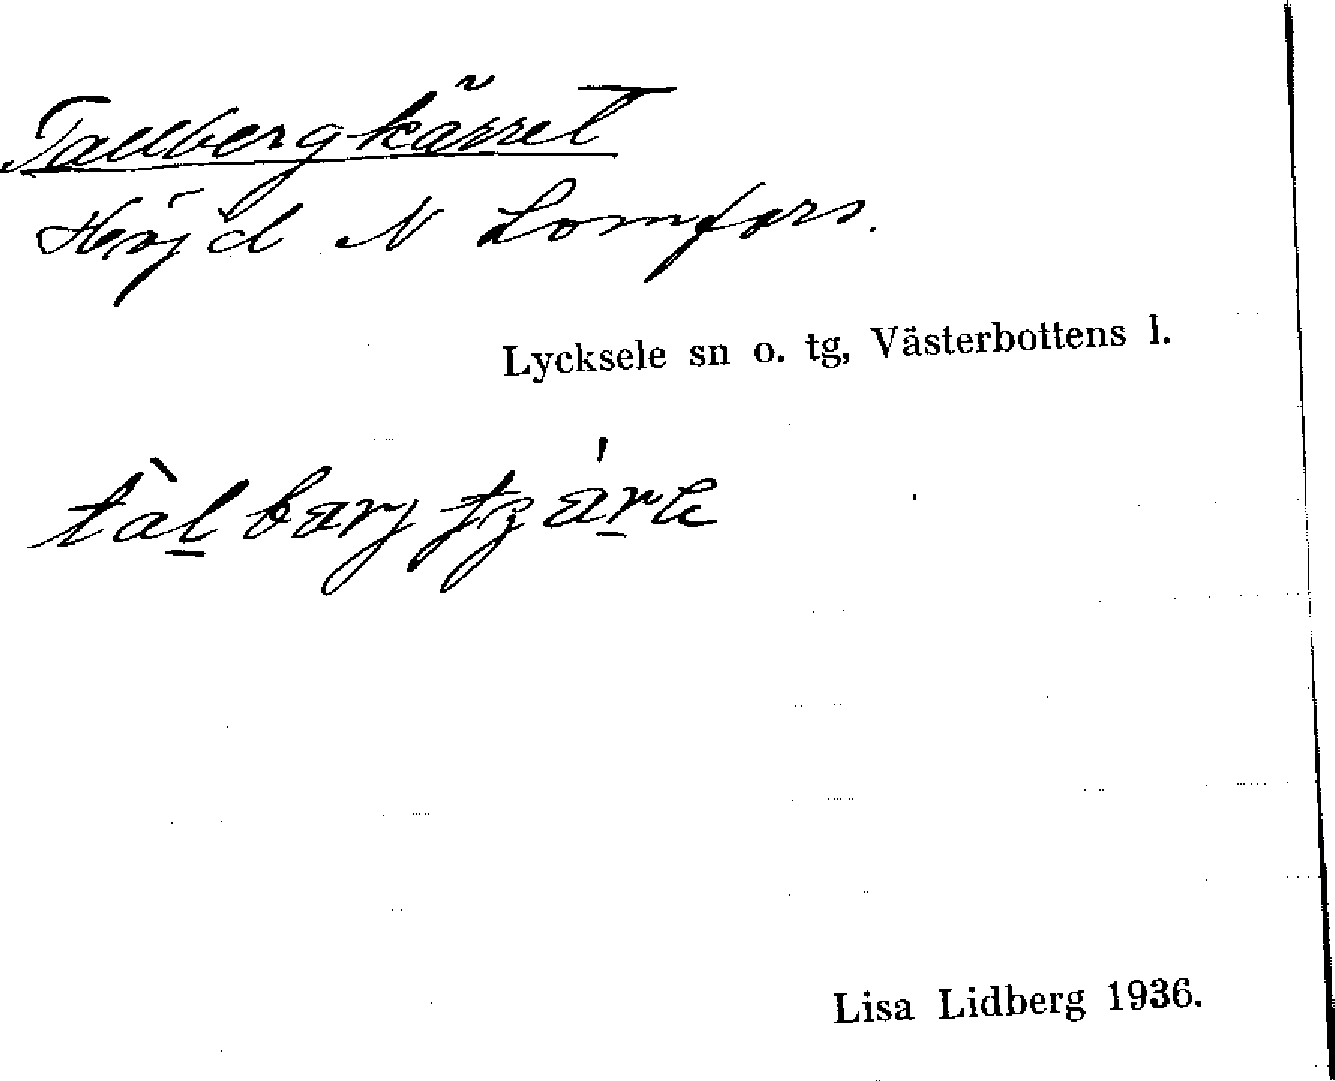 Tallbergkärret
Höjd N Lomfors.
Lycksele sn o. tg, Västerbottens l.
Lisa Lidberg 1936.